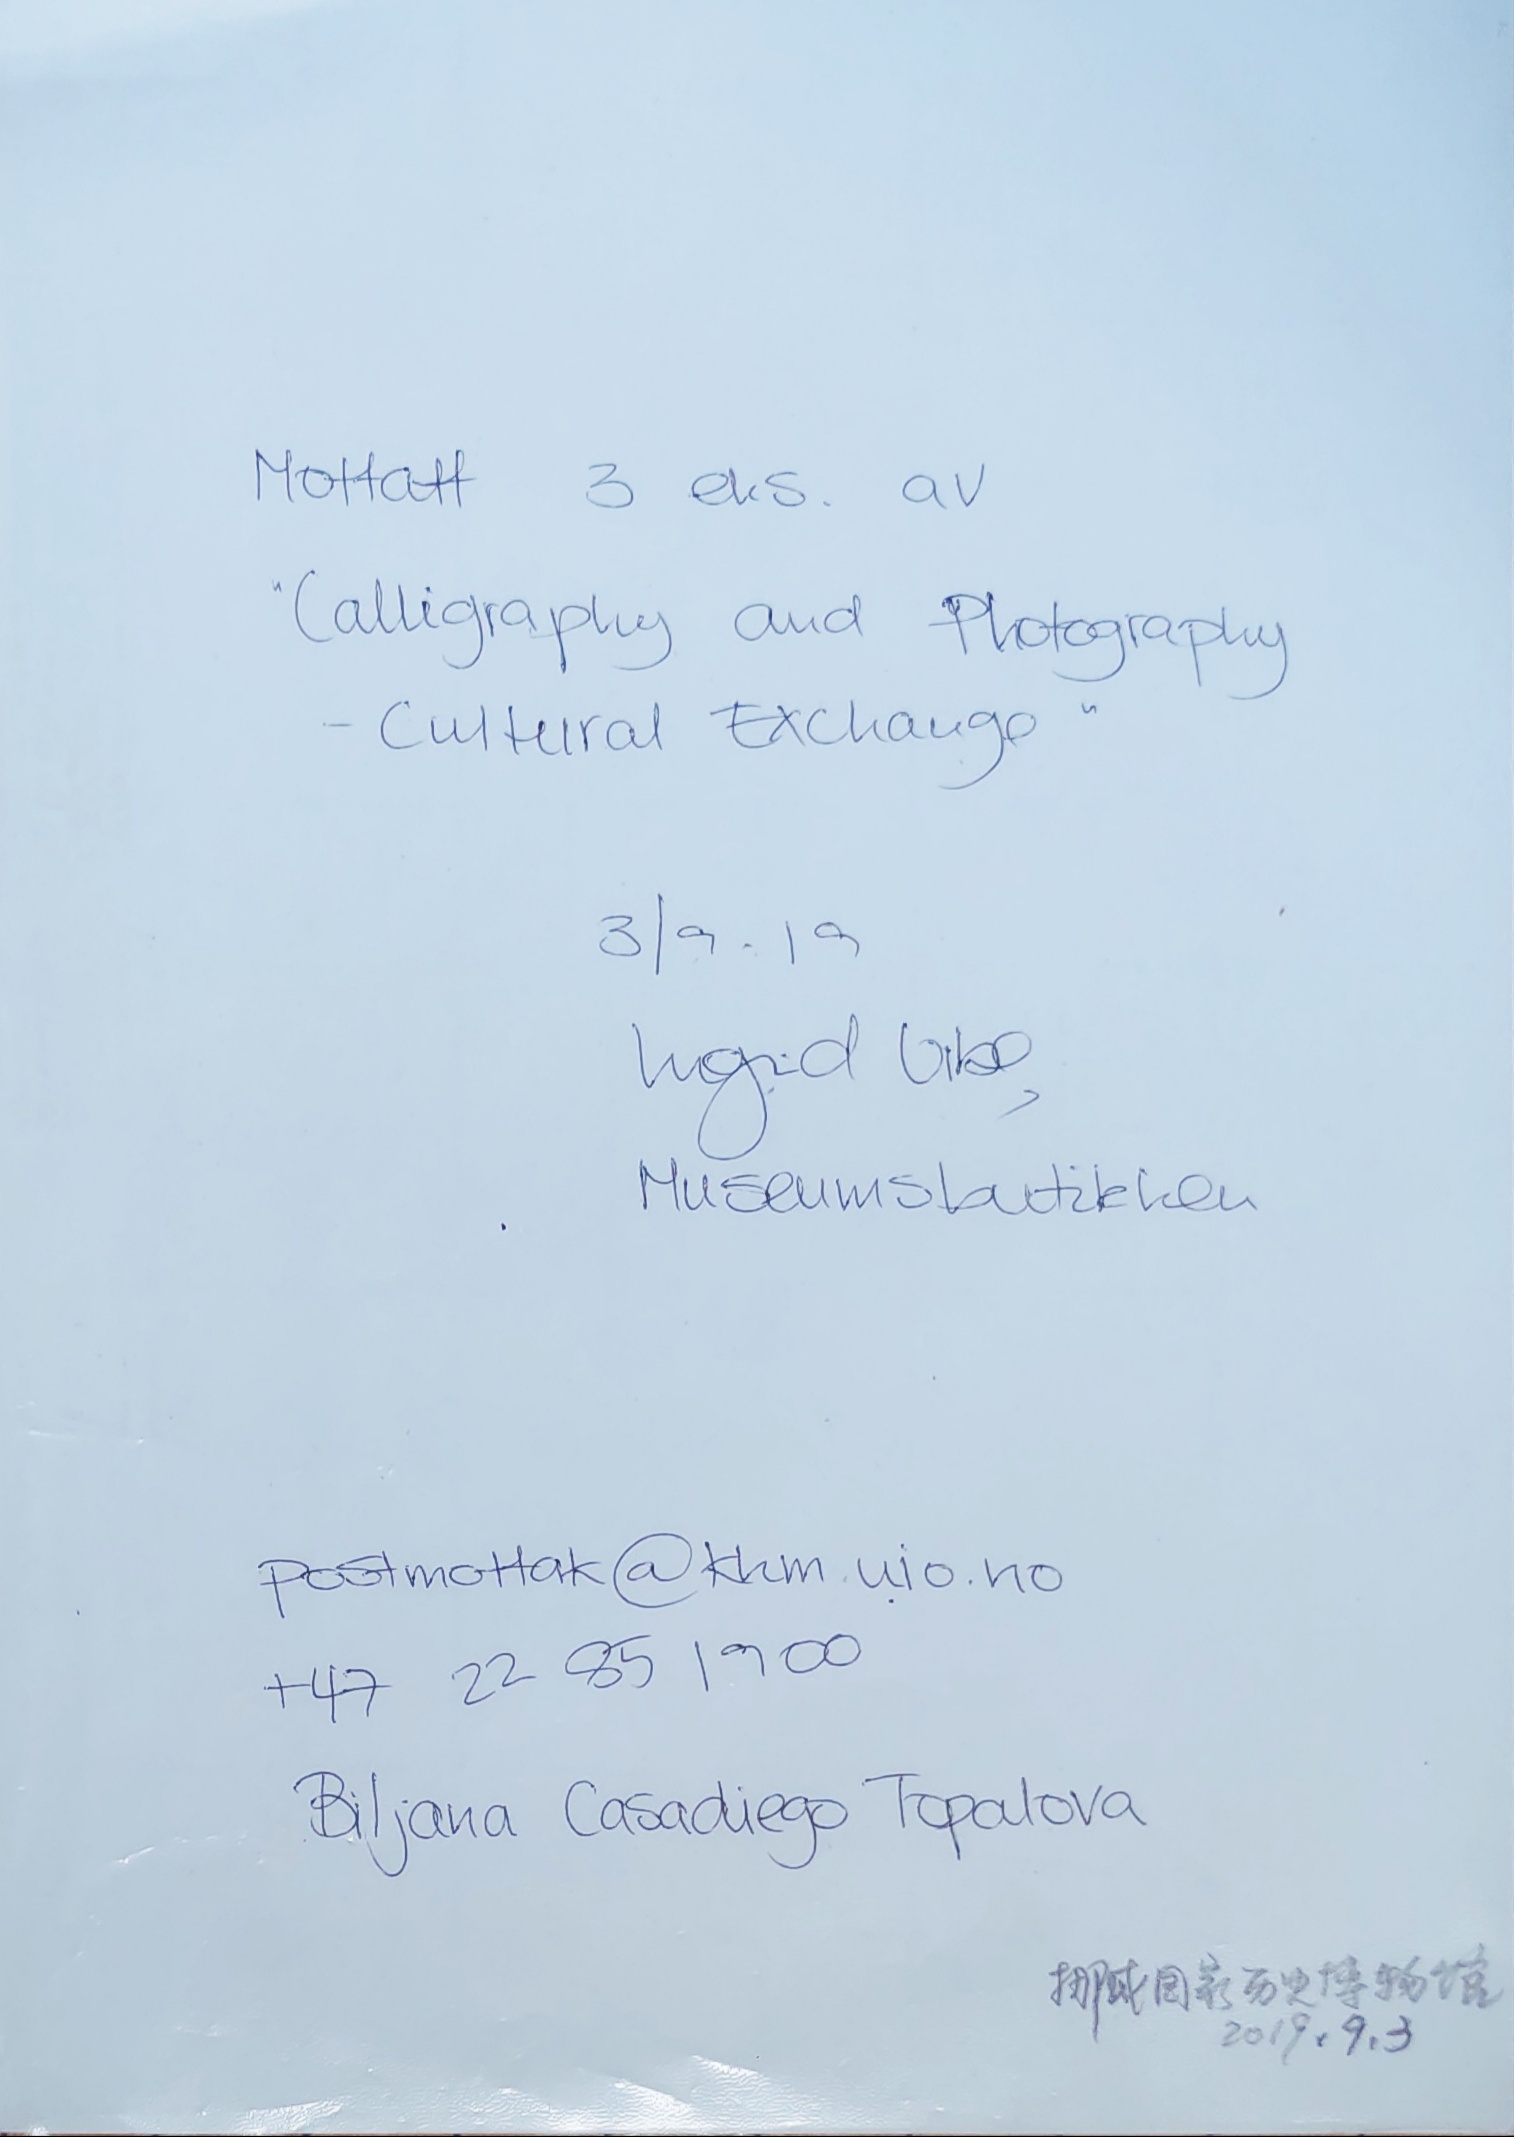 Mottatt 3 eks. av
"Calligraphy and Photography
- Cultural Exchange"
3/9.19
Ingrid Vibe,
Museumsbutikken
postmottak@khm.uio.no
+47 22 85 1900
Biljana Casadiego Topalova
挪威国家历史博物馆
2019.9.3